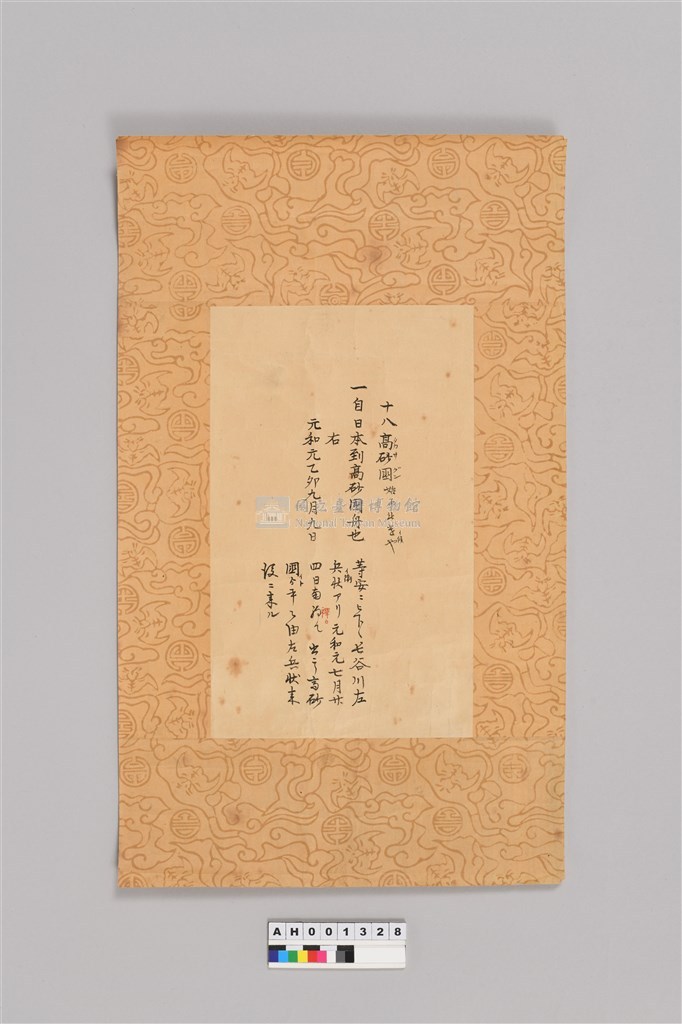 十八 高砂國
一自日本到高砂國舟也
右
元和元乙卯九月九日
等安ニ 長谷川左
兵 状アリ 元和元七月廿
四日 高砂
國 由左兵状来
後ニ来ル
國立臺灣博物館
National Taiwan Museum
AH001328